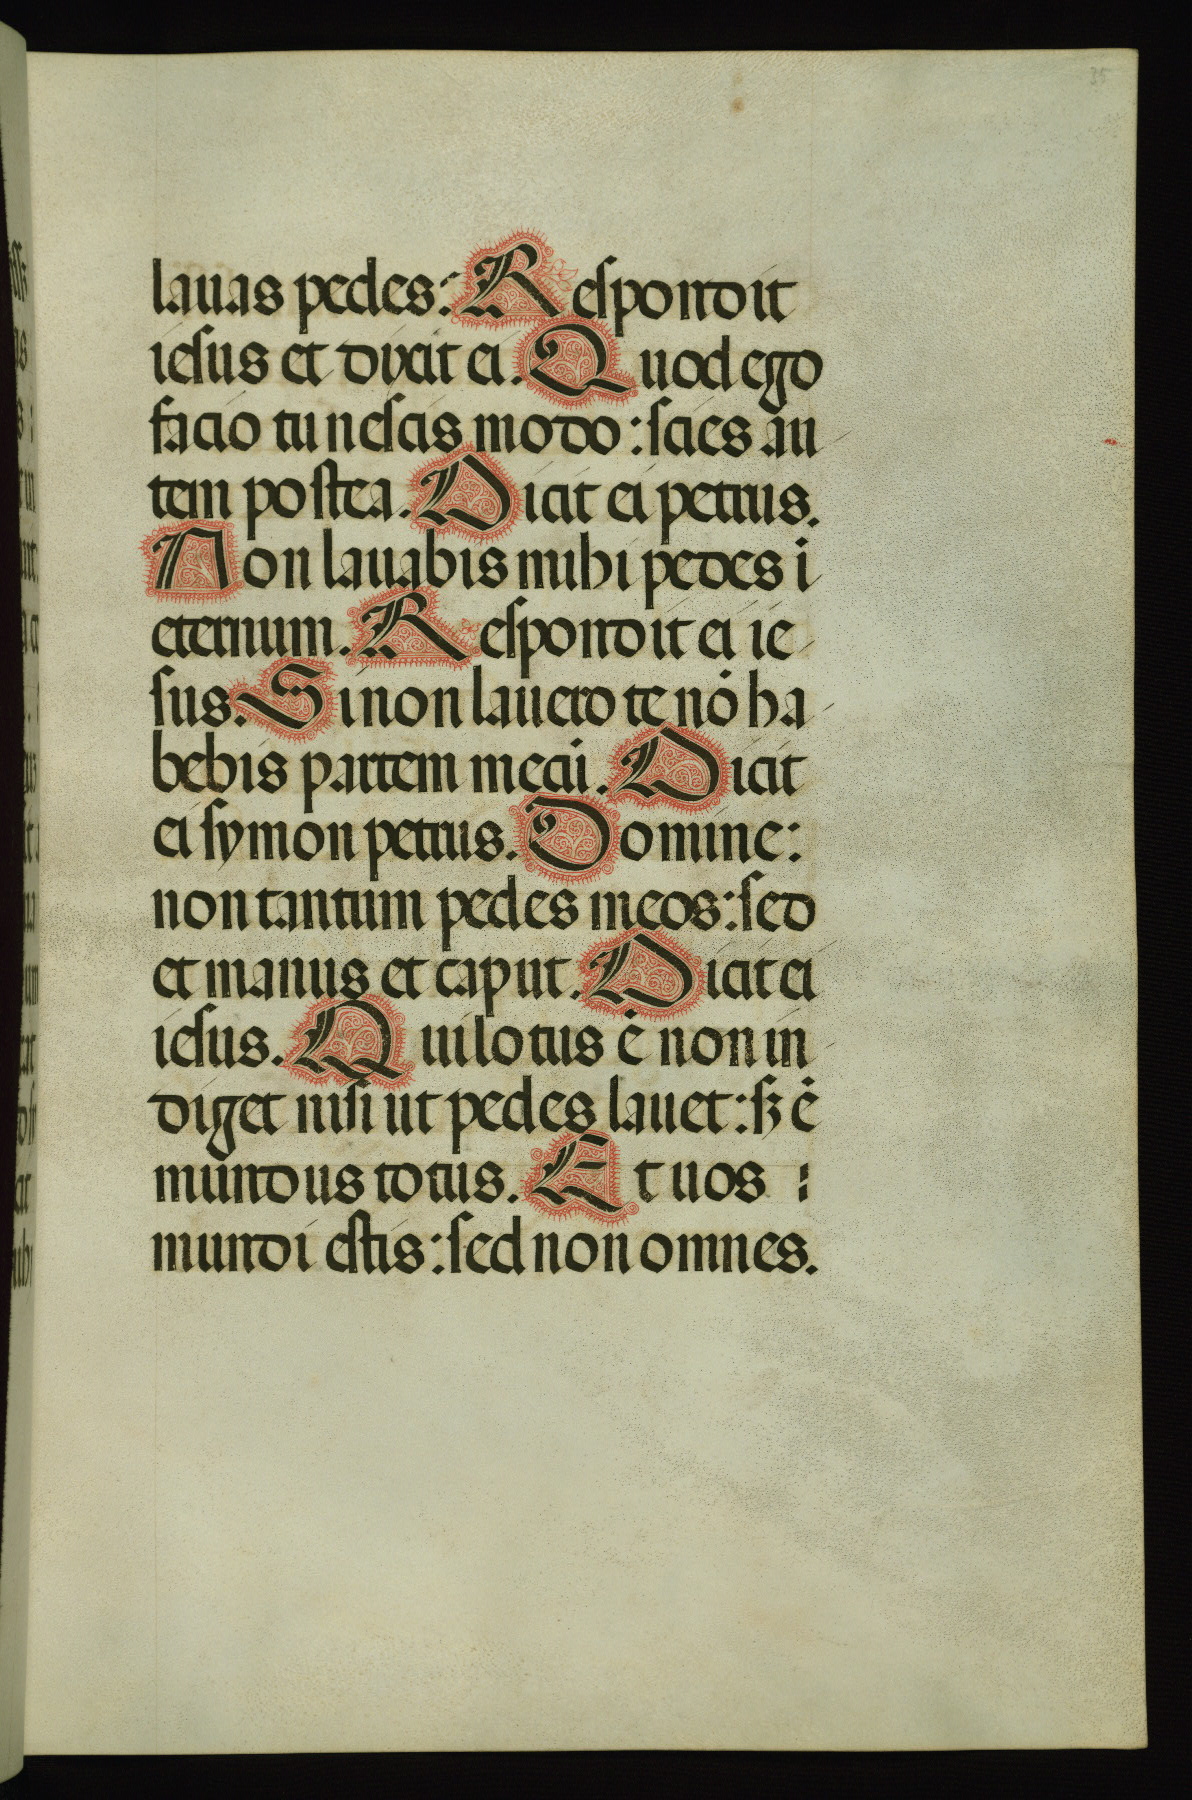 35
lauas pedes: Respondit
iesus et dixit ei. Quod ego
facio tu nescis modo: scies au
tem postea. Dicit ei petrus.
Non lauabis mihi pedes i
eternum. Respondit ei ie
sus. Si non lauero te nō ha
bebis partem mecū. Dicit
ei symon petrus. Domine:
non tantum pedes meos: sed
et manus et caput. Dicit ei
iesus. Qui lotus ē non in
diget nisi ut pedes lauet: sꝫ ē
mundus totus. Et uos :
mundi estis: sed non omnes.